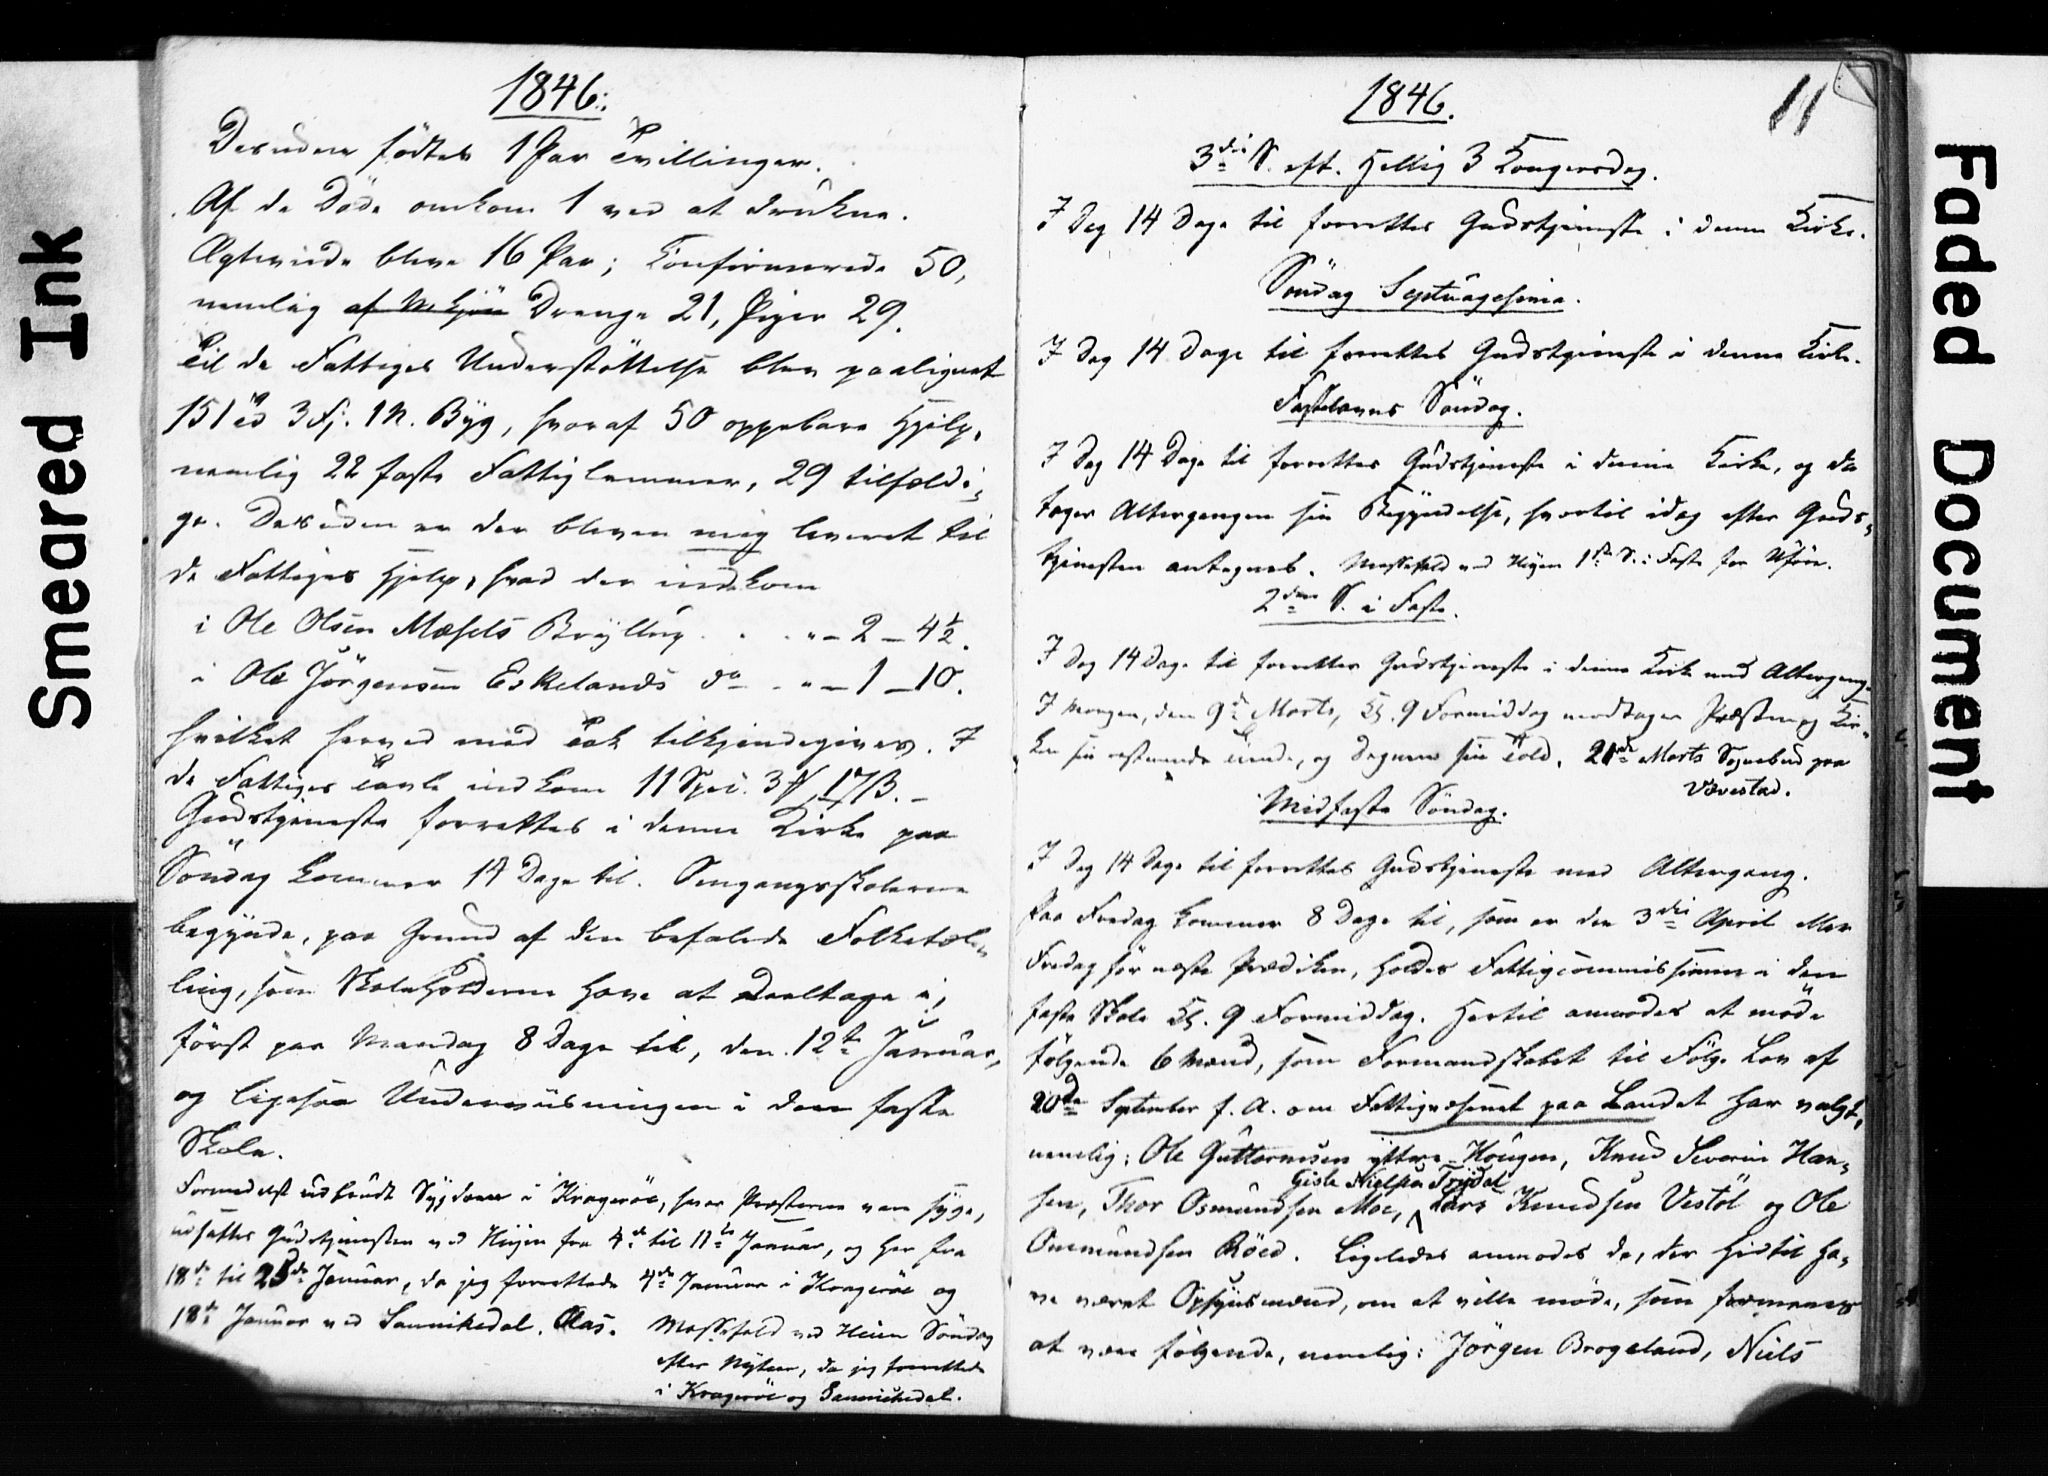 1846.
Desuden fødtes 1 Par Tvillinger.
Af de Døde omkom 1 ved at drukne.
Ægteviede bleve 16 Par; Confirmerede 50,
nemlig Drenge 21, Piger 29.
Til de Fattiges Understøttelse blev paalignet
151 3 Fj. 1 M. Byg, hvoraf 50 oppebare Hjelp,
nemlig 22 faste Fattiglemmer, 29 tilfældi-
ge. Desuden er der bleven mig leveret til
de Fattiges Hjelp, hvad der indkom
i Ole Olsen Mæsels Bryllup . . . " – 2 – 4½.
i Ole Jörgensen Eskelands do . " – 1 – 10.
hvilket herved med Tak tilkjendegives. I
de Fattiges Tavle indkom 11 Spec. 3 17 ß. –
Gudstjeneste forrettes i denne Kirke paa
Søndag kommer 14 Dage til. Omgangsskolerne
begynde, paa Grund af den befalede Folketæl-
ling, som Skoleholderne have at deeltage i,
først paa Mandag 8 Dage til, den 12te Januar,
og ligesaa Underviisningen i den faste
Skole.
Formedelst udbrudt Sygdom i Kragerøe, hvor Præsterne vare syge,
udsattes Gudstjenesten ved Heien fra 4de til 11te Januar, og her fra
18de til 25de Januar, da jeg forrettede 4de Januar i Kragerøe og
18de Januar ved Sannikedal. Aas. Messefald ved Heien Søndag
efter Nytaar, da jeg forrettede
i Kragerøe og Sannikedal.
11
1846.
3die S. eft. Hellig 3 Kongersdag.
I Dag 14 Dage til forrettes Gudstjeneste i denne Kirke.
Søndag Septuagesima.
I Dag 14 Dage til forrettes Gudstjeneste i denne Kirke.
Fastelavns Søndag.
I Dag 14 Dage til forrettes Gudstjeneste i denne Kirke, og da
tager Altergangen sin Begyndelse, hvortil idag efter Guds-
tjenesten antegnes. Messefald ved Heien 1ste S. i Faste for Uføre.
2den S. i Faste.
I Dag 14 Dage til forrettes Gudstjeneste i denne Kirke med Altergang.
I Morgen, den 9de Marts, Kl. 9 Formiddag modtager Præsten og Kir-
ken sin resterende Tiende, og Degnen sin Told. 21de Marts Sognebud paa
Vævestad.
Midfaste Søndag.
I Dag 14 Dage til forrettes Gudstjeneste med Altergang.
Paa Fredag kommer 8 Dage til, som er den 3die April eller
Fredag før næste Prædiken, holdes Fattigcommission i den
faste Skole Kl. 9 Formiddag. Hertil anmodes at møde
følgende 6 Mænd, som Formandskabet til Følge Lov af
20de September f. A. om Fattigvæsenet paa Landet har valgt,
nemlig: Ole Guttormsen yttre-Hougen, Knud Severin Han-
Gisle Nielsen Trydal
sen, Thor Osmundsen Moe, Lars Knudsen Vestöl og Ole
Ommundsen Röed. Ligeledes anmodes de, der hidtil ha-
ve været Opsynsmænd, om at ville møde, som formenes
at være følgende, nemlig: Jörgen Brogeland, Niels
Smeared Ink
Faded Document